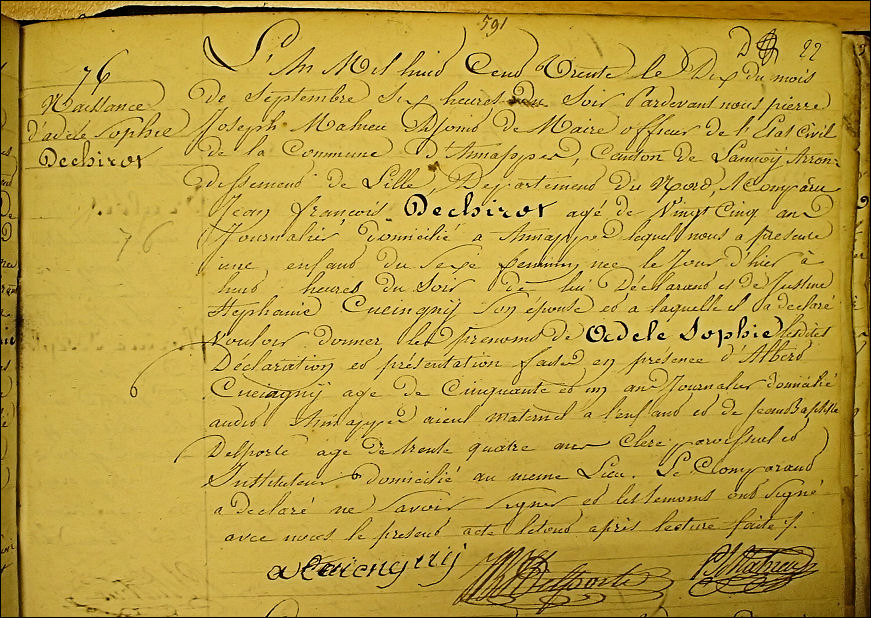 591
22
76
Naissance
d'adele Sophie
Dechirot
76
L'An Mil huid Cend Trente le Dix du mois
De Septembre Six heures du Soir Pardevant nous pierre
Joseph Mahieu Adjoind de Maire officier de l'Etat Civil
de la Commune d'Annappes, Canton de Lannoy Arron-
dissemend de Lille, Departemend du Nord, A Comparu
Jean françois Dechirot agé de Vingt Cinq ans
Journalier domicilié a Annappes lequel nous a presenté
une enfand du Sexe feminin née le Jour d'hier à
huid heures du Soir de lui Déclarand et de Justine
Stephanie Cueingnij Son épouse et a laquelle il a declaré
Vouloir donner les prenoms de Adelé Sophie lesdites
Déclaration et présentation faites en présence d'Alberd
Cueingnij agé de Cinquante et un ans Journalier domicilié
audit Annappes aieul maternel a l'enfand et de Jean Baptiste
Delporte agé de trente quatre ans Clerc paroissial et
Instituteur domicilié au meme Lieu. Le Comparand
a declaré ne Savoir Signer et les temoins ont Signé
avec nous le presend acte letoud après lecture faite
a Cueingnij JB Delporte PJ Mahieu